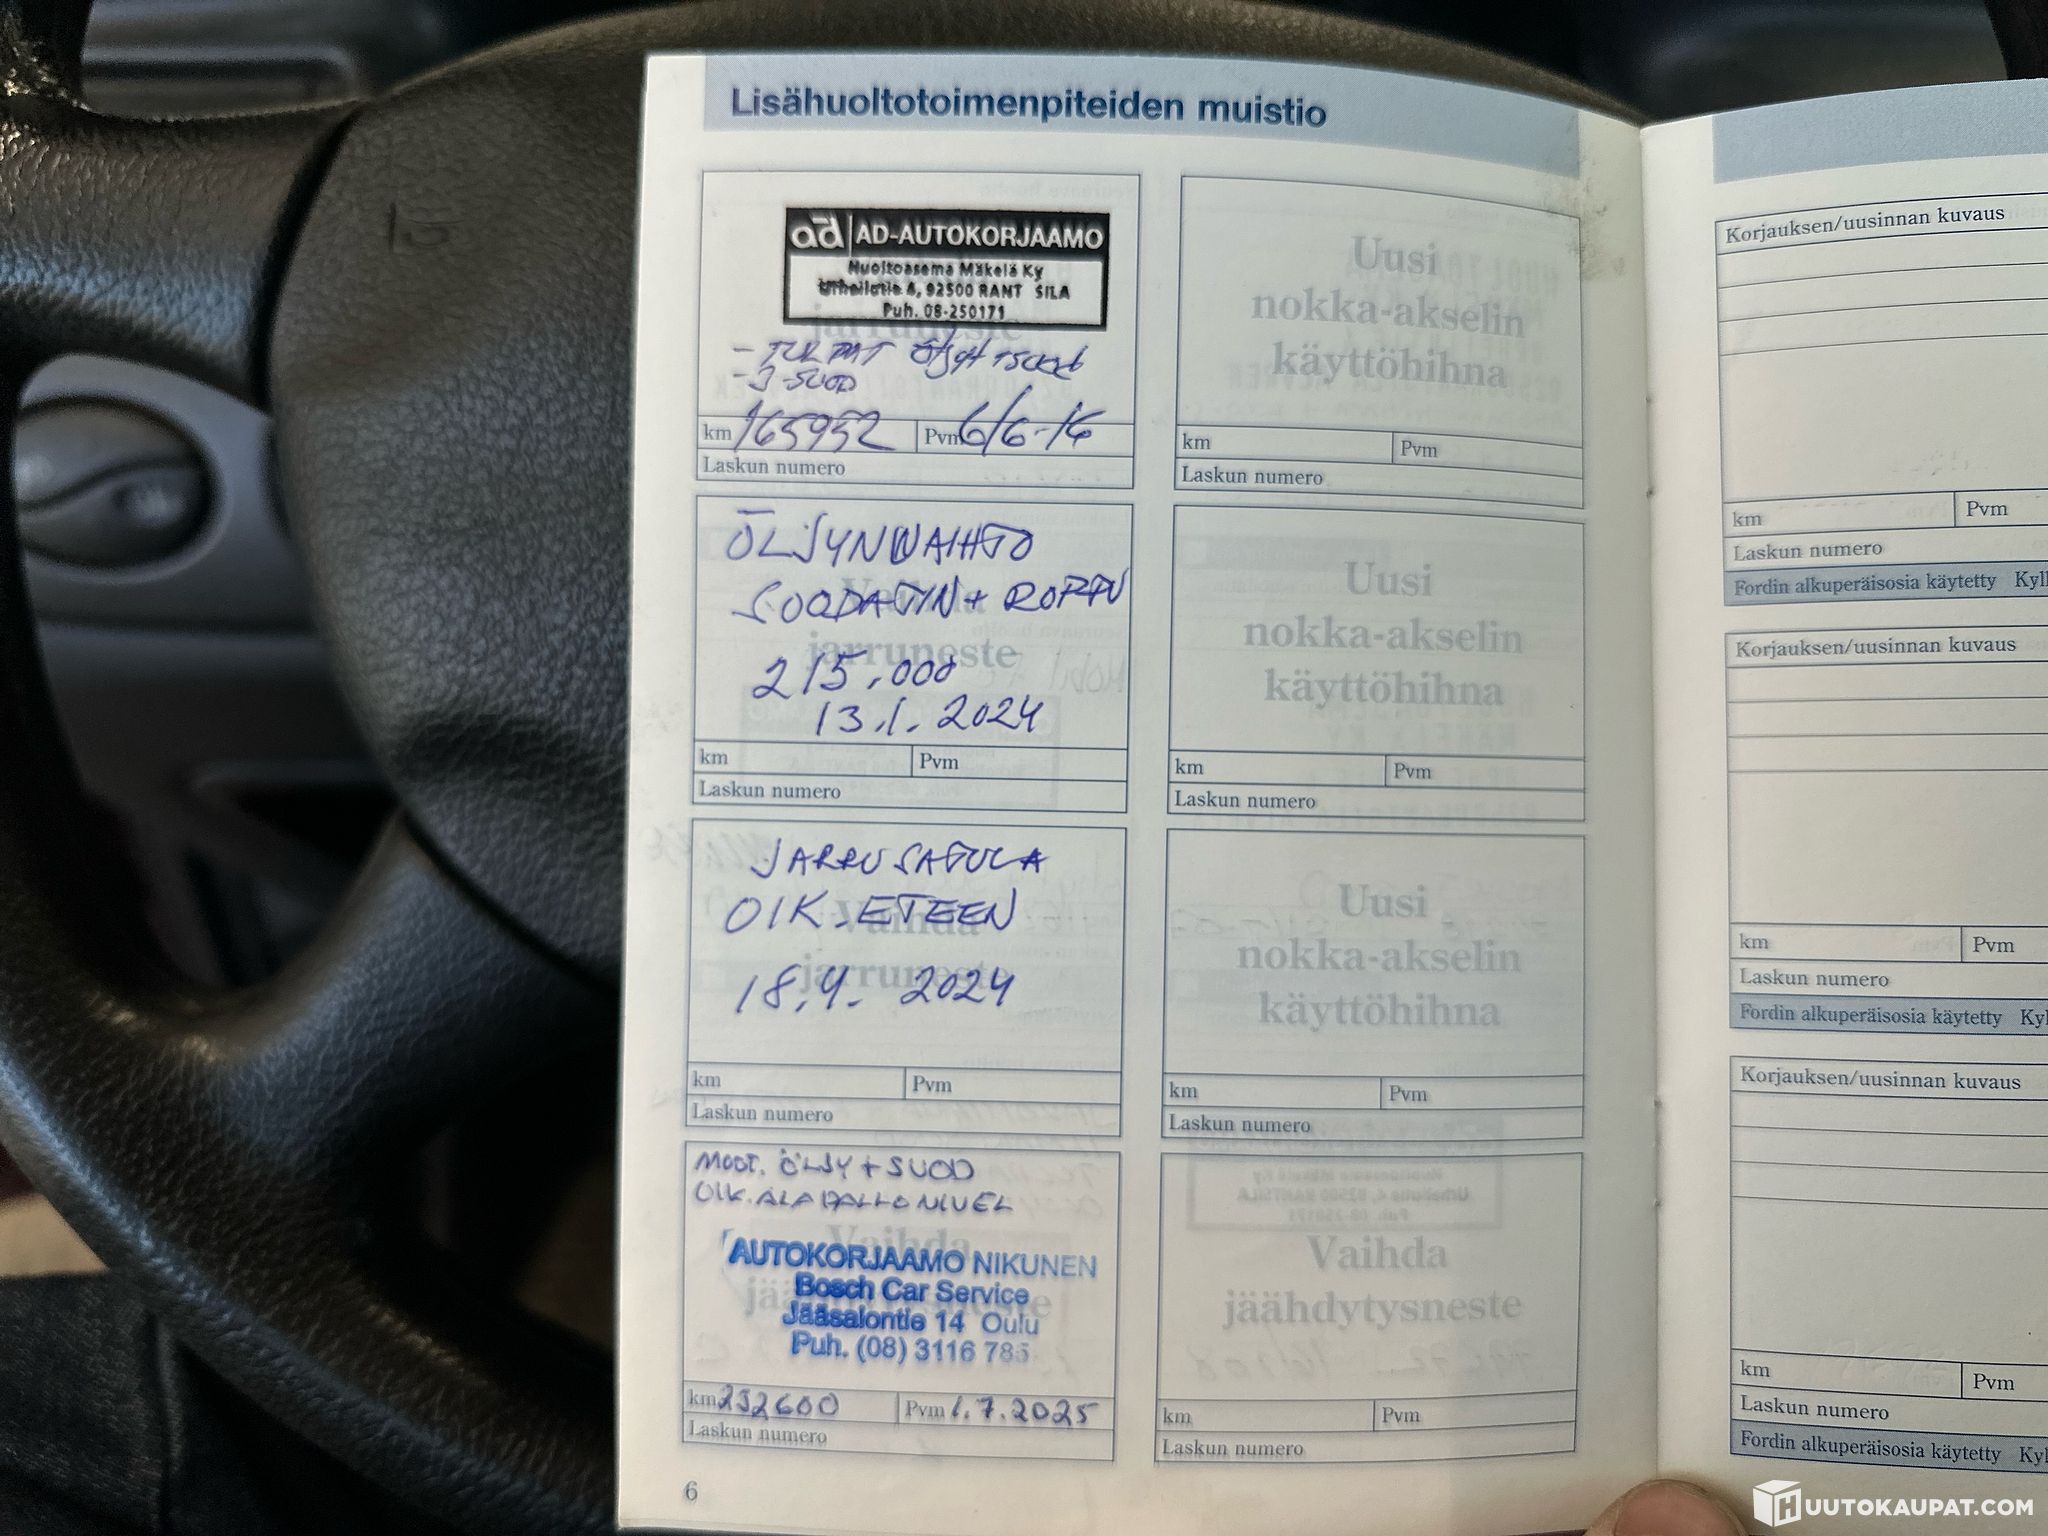 Lisähuoltotoimenpiteiden muistio
ad AD-AUTOKORJAAMO
Huoltoasema Mäkelä Ky
Urheilutie 4, 92500 RANT SILA
Puh. 08-250171
- TULPAT öljyt
- I-SUOD
km 165952 Pvm 6/6-16
Laskun numero
ÖLJYNWAIHTO
SUODATIN + ROPPU
215.000
13.1.2024
km Pvm
Laskun numero
JARRUSATULA
OIK. ETEEN
18.4. 2024
km Pvm
Laskun numero
MOOT. ÖLJY + SUOD
OIK. ALAPALLONIVEL
AUTOKORJAAMO NIKUNEN
Bosch Car Service
Jääsalontie 14 Oulu
Puh. (08) 3116 785
km 232600 Pvm 1.7.2025
Laskun numero
6
Uusi
nokka-akselin
käyttöhihna
km Pvm
Laskun numero
Uusi
nokka-akselin
käyttöhihna
km Pvm
Laskun numero
Uusi
nokka-akselin
käyttöhihna
km Pvm
Laskun numero
Vaihda
jäähdytysneste
km Pvm
Laskun numero
Korjauksen/uusinnan kuvaus
km Pvm
Laskun numero
Fordin alkuperäisosia käytetty Kyl
Korjauksen/uusinnan kuvaus
km Pvm
Laskun numero
Fordin alkuperäisosia käytetty Kyl
Korjauksen/uusinnan kuvaus
km Pvm
Laskun numero
Fordin alkuperäisosia käytetty Kyl
HUUTOKAUPAT.COM